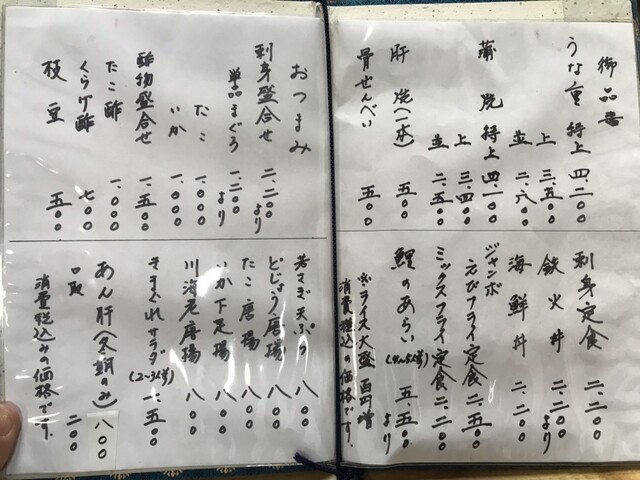 御品書
うな重 特上 四、二〇〇
上 三、五〇〇
並 二、八〇〇
蒲焼 特上 四、一〇〇
上 三、四〇〇
並 二、五〇〇
肝焼(一本) 五〇〇
骨せんべい 五〇〇
刺身定食 二、二〇〇
鉄火丼 二、二〇〇より
海鮮丼 二、二〇〇
ジャンボえびフライ定食 二、五〇〇
ミックスフライ定食 二、二〇〇
鯉のあらい 五、五〇〇
※ライス大盛 百円増
消費税込みの価格です。
おつまみ
刺身盛合せ 二、二〇〇より
単品 まぐろ 一、二〇〇より
たこ 一、〇〇〇
いか 一、〇〇〇
酢物盛合せ 一、五〇〇
たこ酢 一、〇〇〇
くらげ酢 七〇〇
枝豆 五〇〇
若さぎ天ぷら 八〇〇
どじょう唐揚 八〇〇
たこ唐揚 八〇〇
いか下足揚 八〇〇
川海老唐揚 八〇〇
きまぐれサラダ(2〜3人分) 一、五〇〇
あん肝(冬期のみ) 八〇〇
口取 二〇〇
消費税込みの価格です。